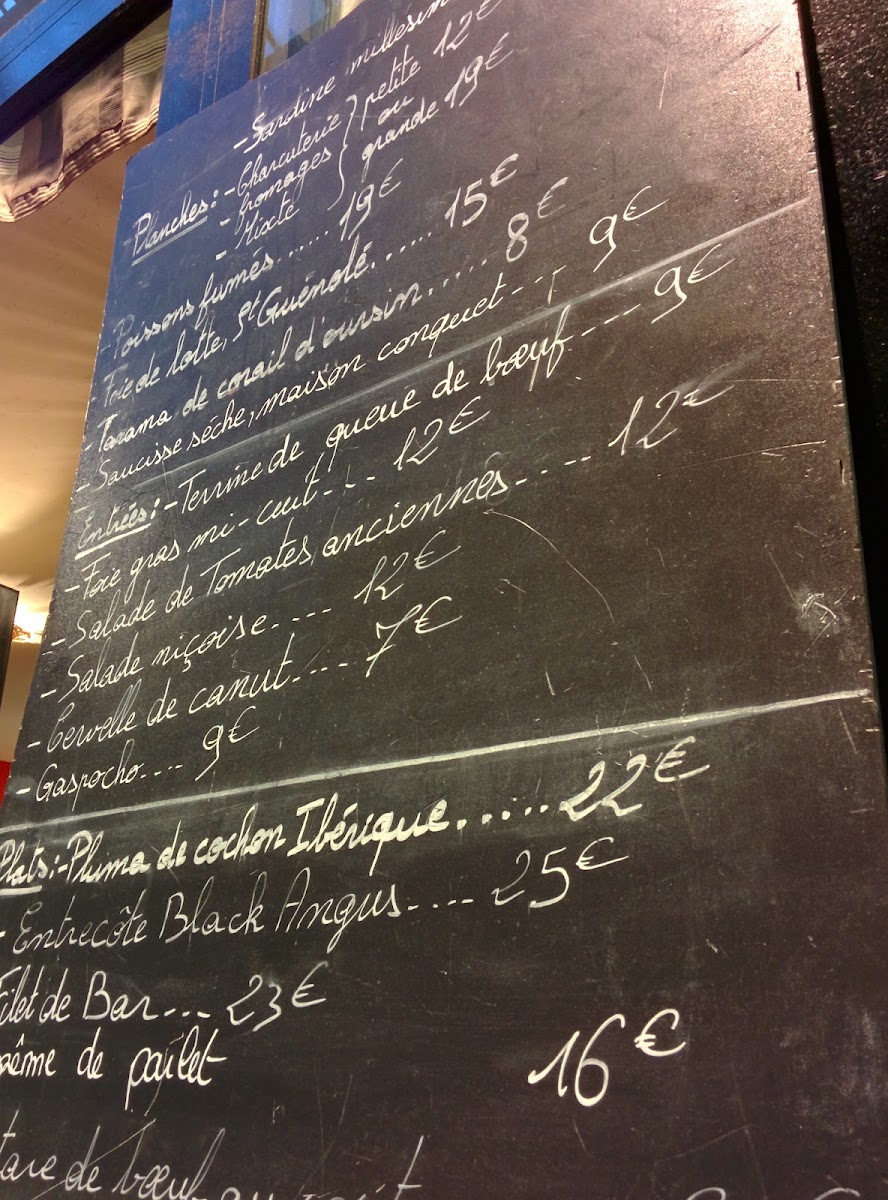 - Sardine millésim
Planches: - Charcuterie } petite 12€
- fromages } ou
- Mixte } grande 19€
- Poissons fumés...... 19€
- Foie de lotte, St Guénolé...... 15€
- Tarama de corail d'oursin..... 8€
- Saucisse sèche, maison conquet... 9€
Entrées: - Terrine de queue de bœuf---- 9€
- Foie gras mi-cuit... 12€
- Salade de Tomates anciennes.... 12€
- Salade niçoise.... 12€
- Cervelle de canut.... 7€
- Gaspocho.... 9€
Plats: - Pluma de cochon Ibérique...... 22€
- Entrecôte Black Angus.... 25€
Filet de Bar... 23€
de 16€
tare de bœuf au